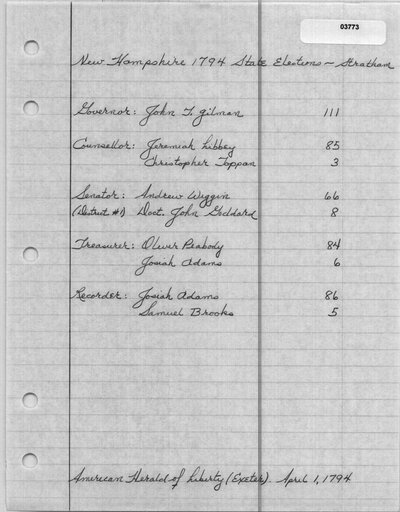 03773
New Hampshire 1794 State Elections ~ Stratham
Governor: John T. Gilman 111
Counsellor: Jeremiah Libbey 85
Christopher Toppan 3
Senator: Andrew Wiggin 66
(District #1) Doct. John Goddard 8
Treasurer: Oliver Peabody 84
Josiah Adams 6
Recorder: Josiah Adams 86
Samuel Brooks 5
American Herald of Liberty (Exeter). April 1, 1794